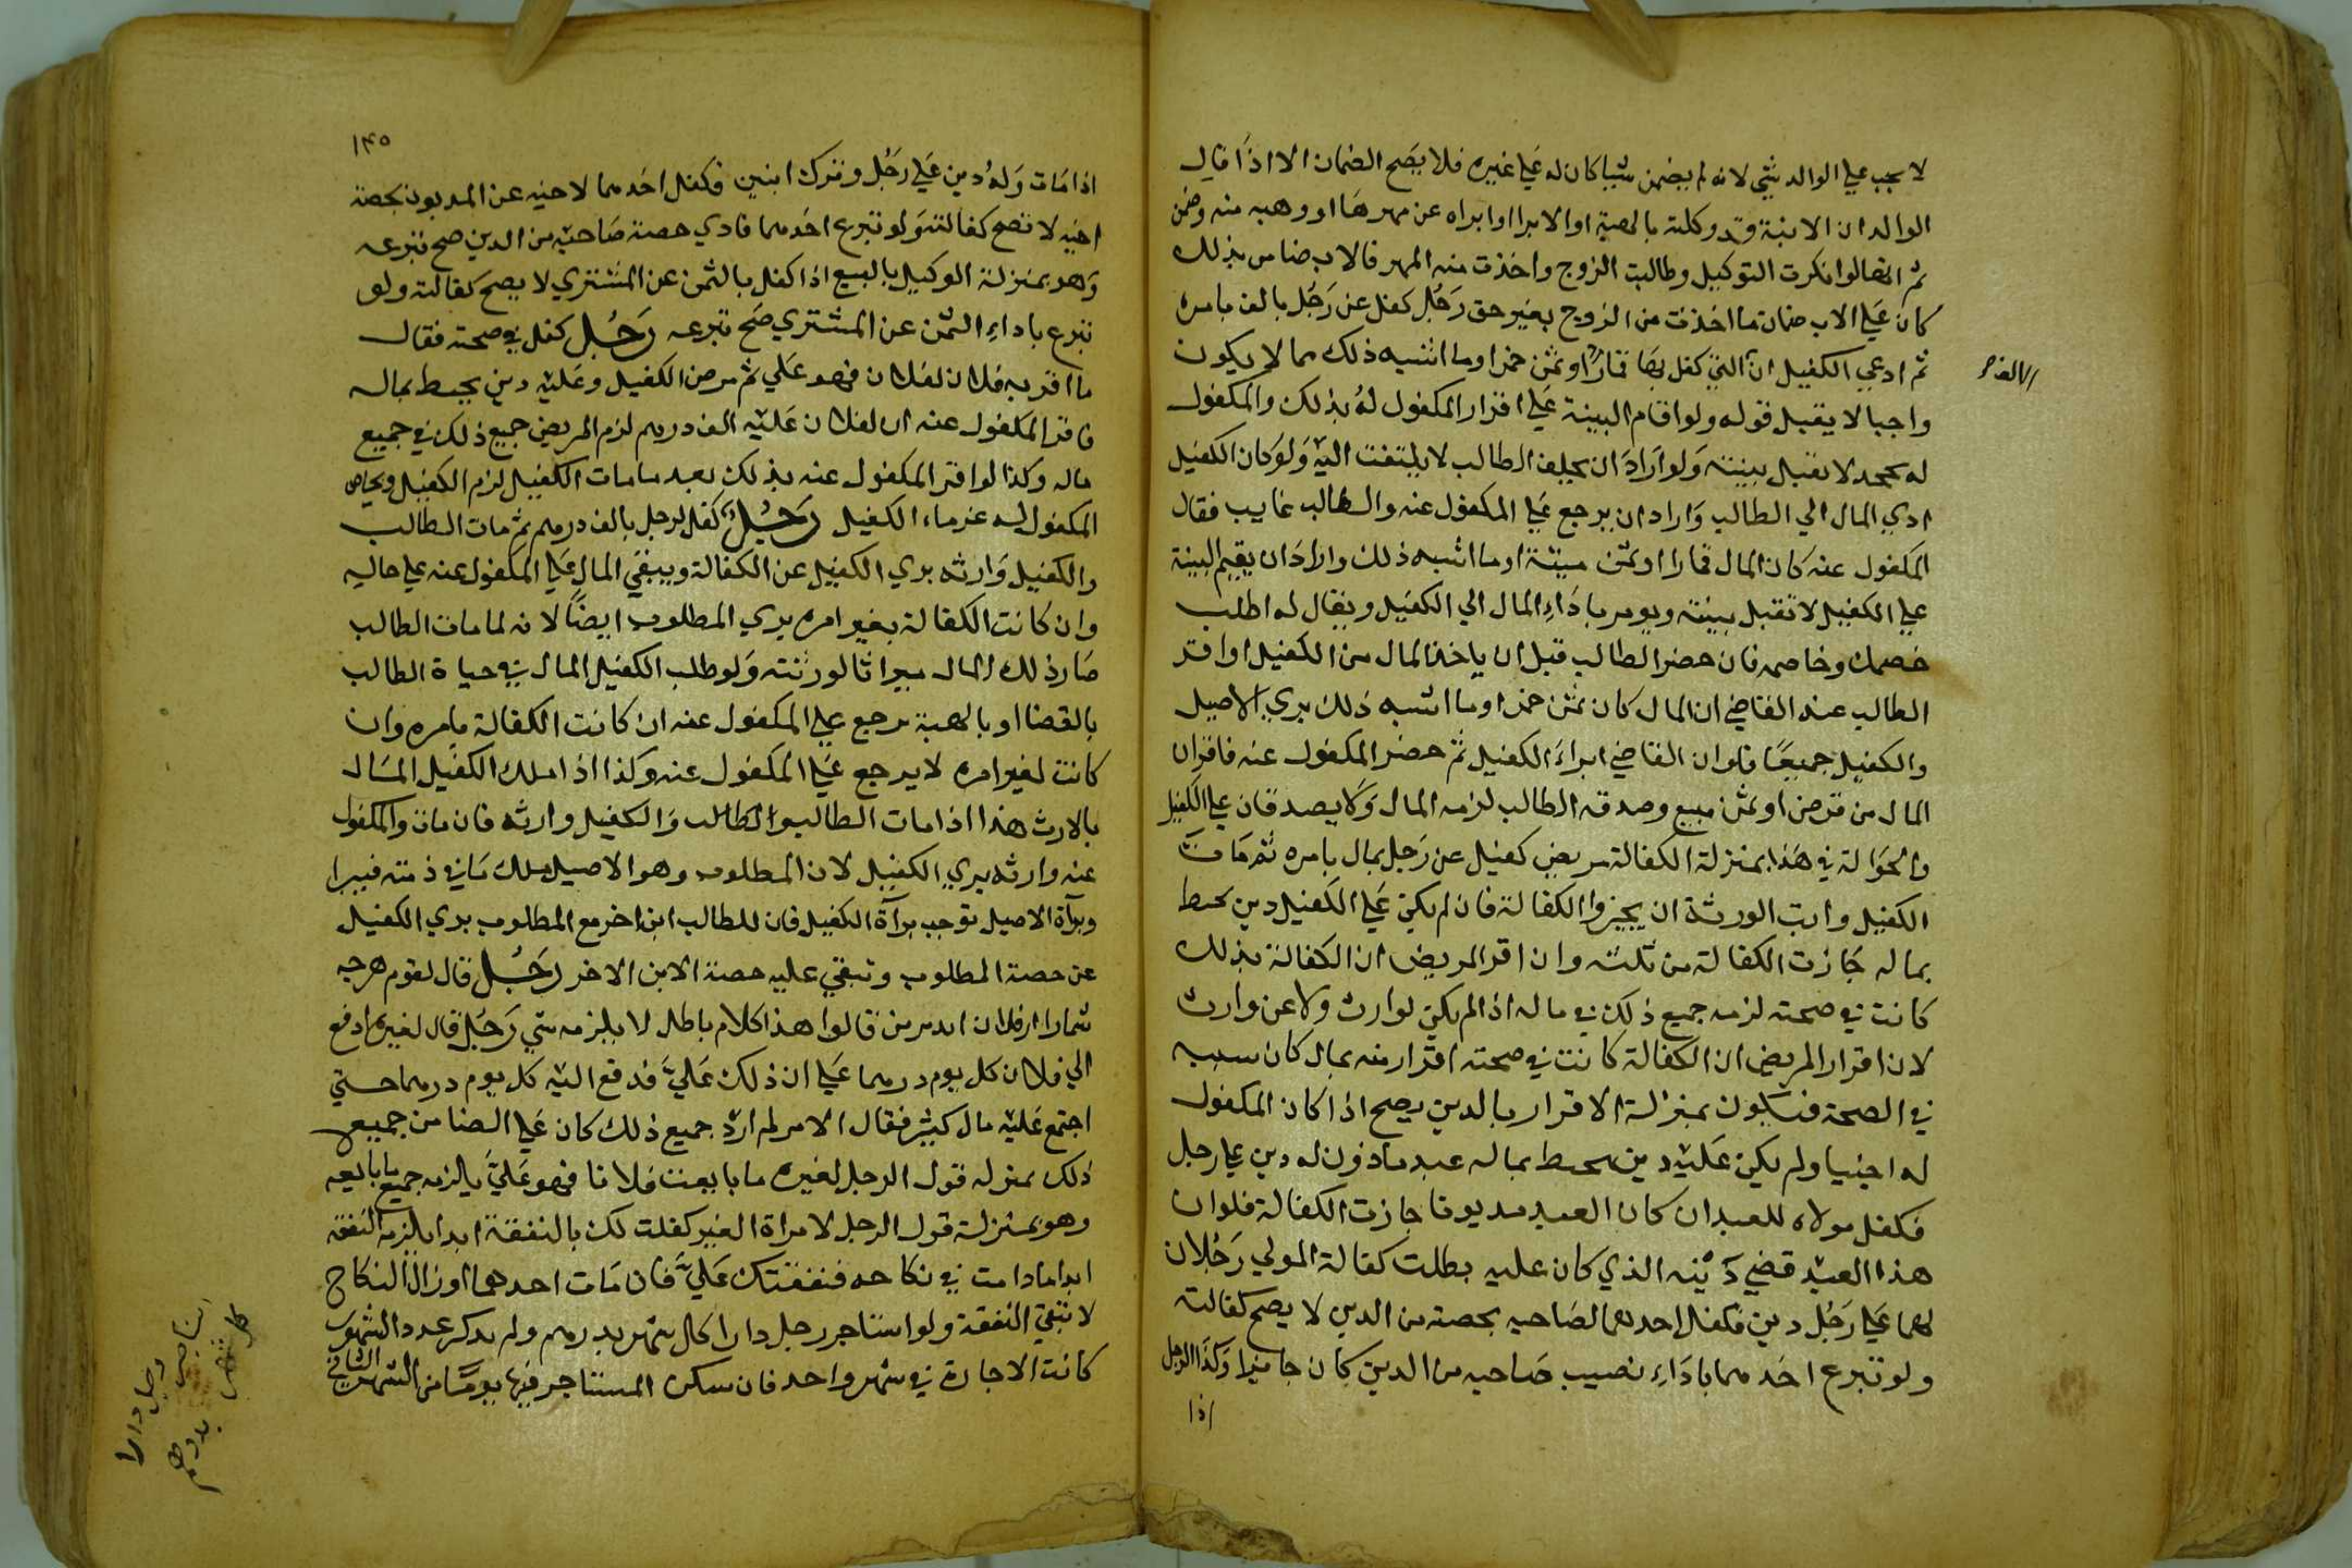 لا يجب علي الوالد شي لانه لم يضمن شيا كان له علي غيره فلا يصح الضمان الا اذا قال
الوالد ان الابنة قد وكلته بالهبة او الابرا او ابراه عن مهرها او وهبه منه وضمن
ثم انها لو انكرت التوكيل وطالبت الزوج واخذت منه المهر فالاب ضامن بذلك
كان علي الاب ضمان ما اخذت من الزوج بغير حق رجل كفل عن رجل بالف بامره
ثم ادعي الكفيل ان التي كفل بها قمارا او ثمن خمر او ما اشبه ذلك مما لا يكون
الالف
واجبا لا يقبل قوله ولو اقام البينة علي اقرار المكفول له بذلك والمكفول
له يجحد لا تقبل بينته ولو اراد ان يحلف الطالب لا يلتفت اليه ولو كان الكفيل
ادي المال الي الطالب واراد ان يرجع علي المكفول عنه والطالب غايب فقال
المكفول عنه كان المال قمارا او ثمن ميتة او ما اشبه ذلك واراد ان يقيم البينة
علي الكفيل لا تقبل بينته ويومر باداء المال الي الكفيل ويقال له اطلب
خصمك وخاصمه فان حضر الطالب قبل ان ياخذ المال من الكفيل او اقر
الطالب عند القاضي ان المال كان ثمن خمر او ما اشبه ذلك بري الاصيل
والكفيل جميعا فلو ان القاضي ابراء الكفيل ثم حضر المكفول عنه فاقر ان
المال من قرض او ثمن مبيع وصدقه الطالب لزمه المال ولا يصدقان علي الكفيل
والحوالة في هذا بمنزلة الكفالة مريض كفيل عن رجل بمال بامره ثم مات
الكفيل وابت الورثة ان يجيزوا الكفالة فان لم يكن علي الكفيل دين يحيط
بماله جازت الكفالة من ثلثه وان اقر المريض ان الكفالة بذلك
كانت في صحته لزمه جميع ذلك في ماله اذا لم يكن لوارث ولا عن وارث
لان اقرار المريض ان الكفالة كانت في صحته اقرار منه بمال كان سببه
في الصحة فيكون بمنزلة الاقرار بالدين يصح اذا كان المكفول
له اجنبيا ولم يكن عليه دين يحيط بماله عبد ماذون له دين علي رجل
فكفل مولاه للعبد ان كان العبد مديونا جازت الكفالة فلو ان
هذا العبد قضي دينه الذي كان عليه بطلت كفالة المولي رجلان
لهما علي رجل دين فكفل احدهما لصاحبه بحصته من الدين لا يصح كفالته
ولو تبرع احدهما باداء نصيب صاحبه من الدين كان جايزا وكذا الرجل
اذا
١٤٥
اذا مات وله دين علي رجل وترك ابنين فكفل احدهما لاخيه عن المديون بحصة
اخيه لا تصح كفالته ولو تبرع احدهما فادي حصة صاحبه من الدين صح تبرعه
وهو بمنزلة الوكيل بالبيع اذا كفل بالثمن عن المشتري لا يصح كفالته ولو
تبرع باداء الثمن عن المشتري صح تبرعه رجل كفل في صحته فقال
ما اقر به فلان لفلان فهو علي ثم مرض الكفيل وعليه دين يحيط بماله
فاقر المكفول عنه ان لفلان عليه الف درهم لزم المريض جميع ذلك في جميع
ماله وكذا لو اقر المكفول عنه بذلك بعد ما مات الكفيل لزم الكفيل ويحاص
المكفول له غرماء الكفيل رجل كفل لرجل بالف درهم ثم مات الطالب
والكفيل وارثه بري الكفيل عن الكفالة ويبقي المال علي المكفول عنه علي حاله
وان كانت الكفالة بغير امره بري المطلوب ايضا لانه لما مات الطالب
صار ذلك المال ميراثا لورثته ولو طلب الكفيل المال في حياة الطالب
بالقضا او بالهبة يرجع علي المكفول عنه ان كانت الكفالة بامره وان
كانت لغير امره لا يرجع علي المكفول عنه وكذا اذا ملك الكفيل المال
بالارث هذا اذا مات الطالب والكفيل وارثه فان مات والمكفول
عنه وارثه بري الكفيل لان المطلوب وهو الاصيل ملك ما في ذمته فيبرا
وبراة الاصيل توجب براة الكفيل فان للطالب ابن اخر مع المطلوب بري الكفيل
عن حصة المطلوب وتبقي عليه حصة الابن الاخر رجل قال لقوم هرجه
شمارا از فلان ايد بر من قالوا هذا كلام باطل لا يلزمه شي رجل قال لغيره ادفع
الي فلان كل يوم درهما علي ان ذلك علي فدفع اليه كل يوم درهما حتي
اجتمع عليه مال كثير فقال الامر لم ارد جميع ذلك كان علي الضامن جميع
ذلك بمنزلة قول الرجل لغيره ما بايعت فلانا فهو علي يلزمه جميع ما بايعه
وهو بمنزلة قول الرجل لامراة الغير كفلت لك بالنفقة ابدا يلزمه النفقة
ابدا ما دامت في نكاحه فنفقتك علي فان مات احدهما او زال النكاح
لا تبقي النفقة ولو استاجر رجل دارا كل شهر بدرهم ولم يذكر عدد الشهور
كانت الاجارة في شهر واحد فان سكن المستاجر فيها يوما من الشهر الثاني